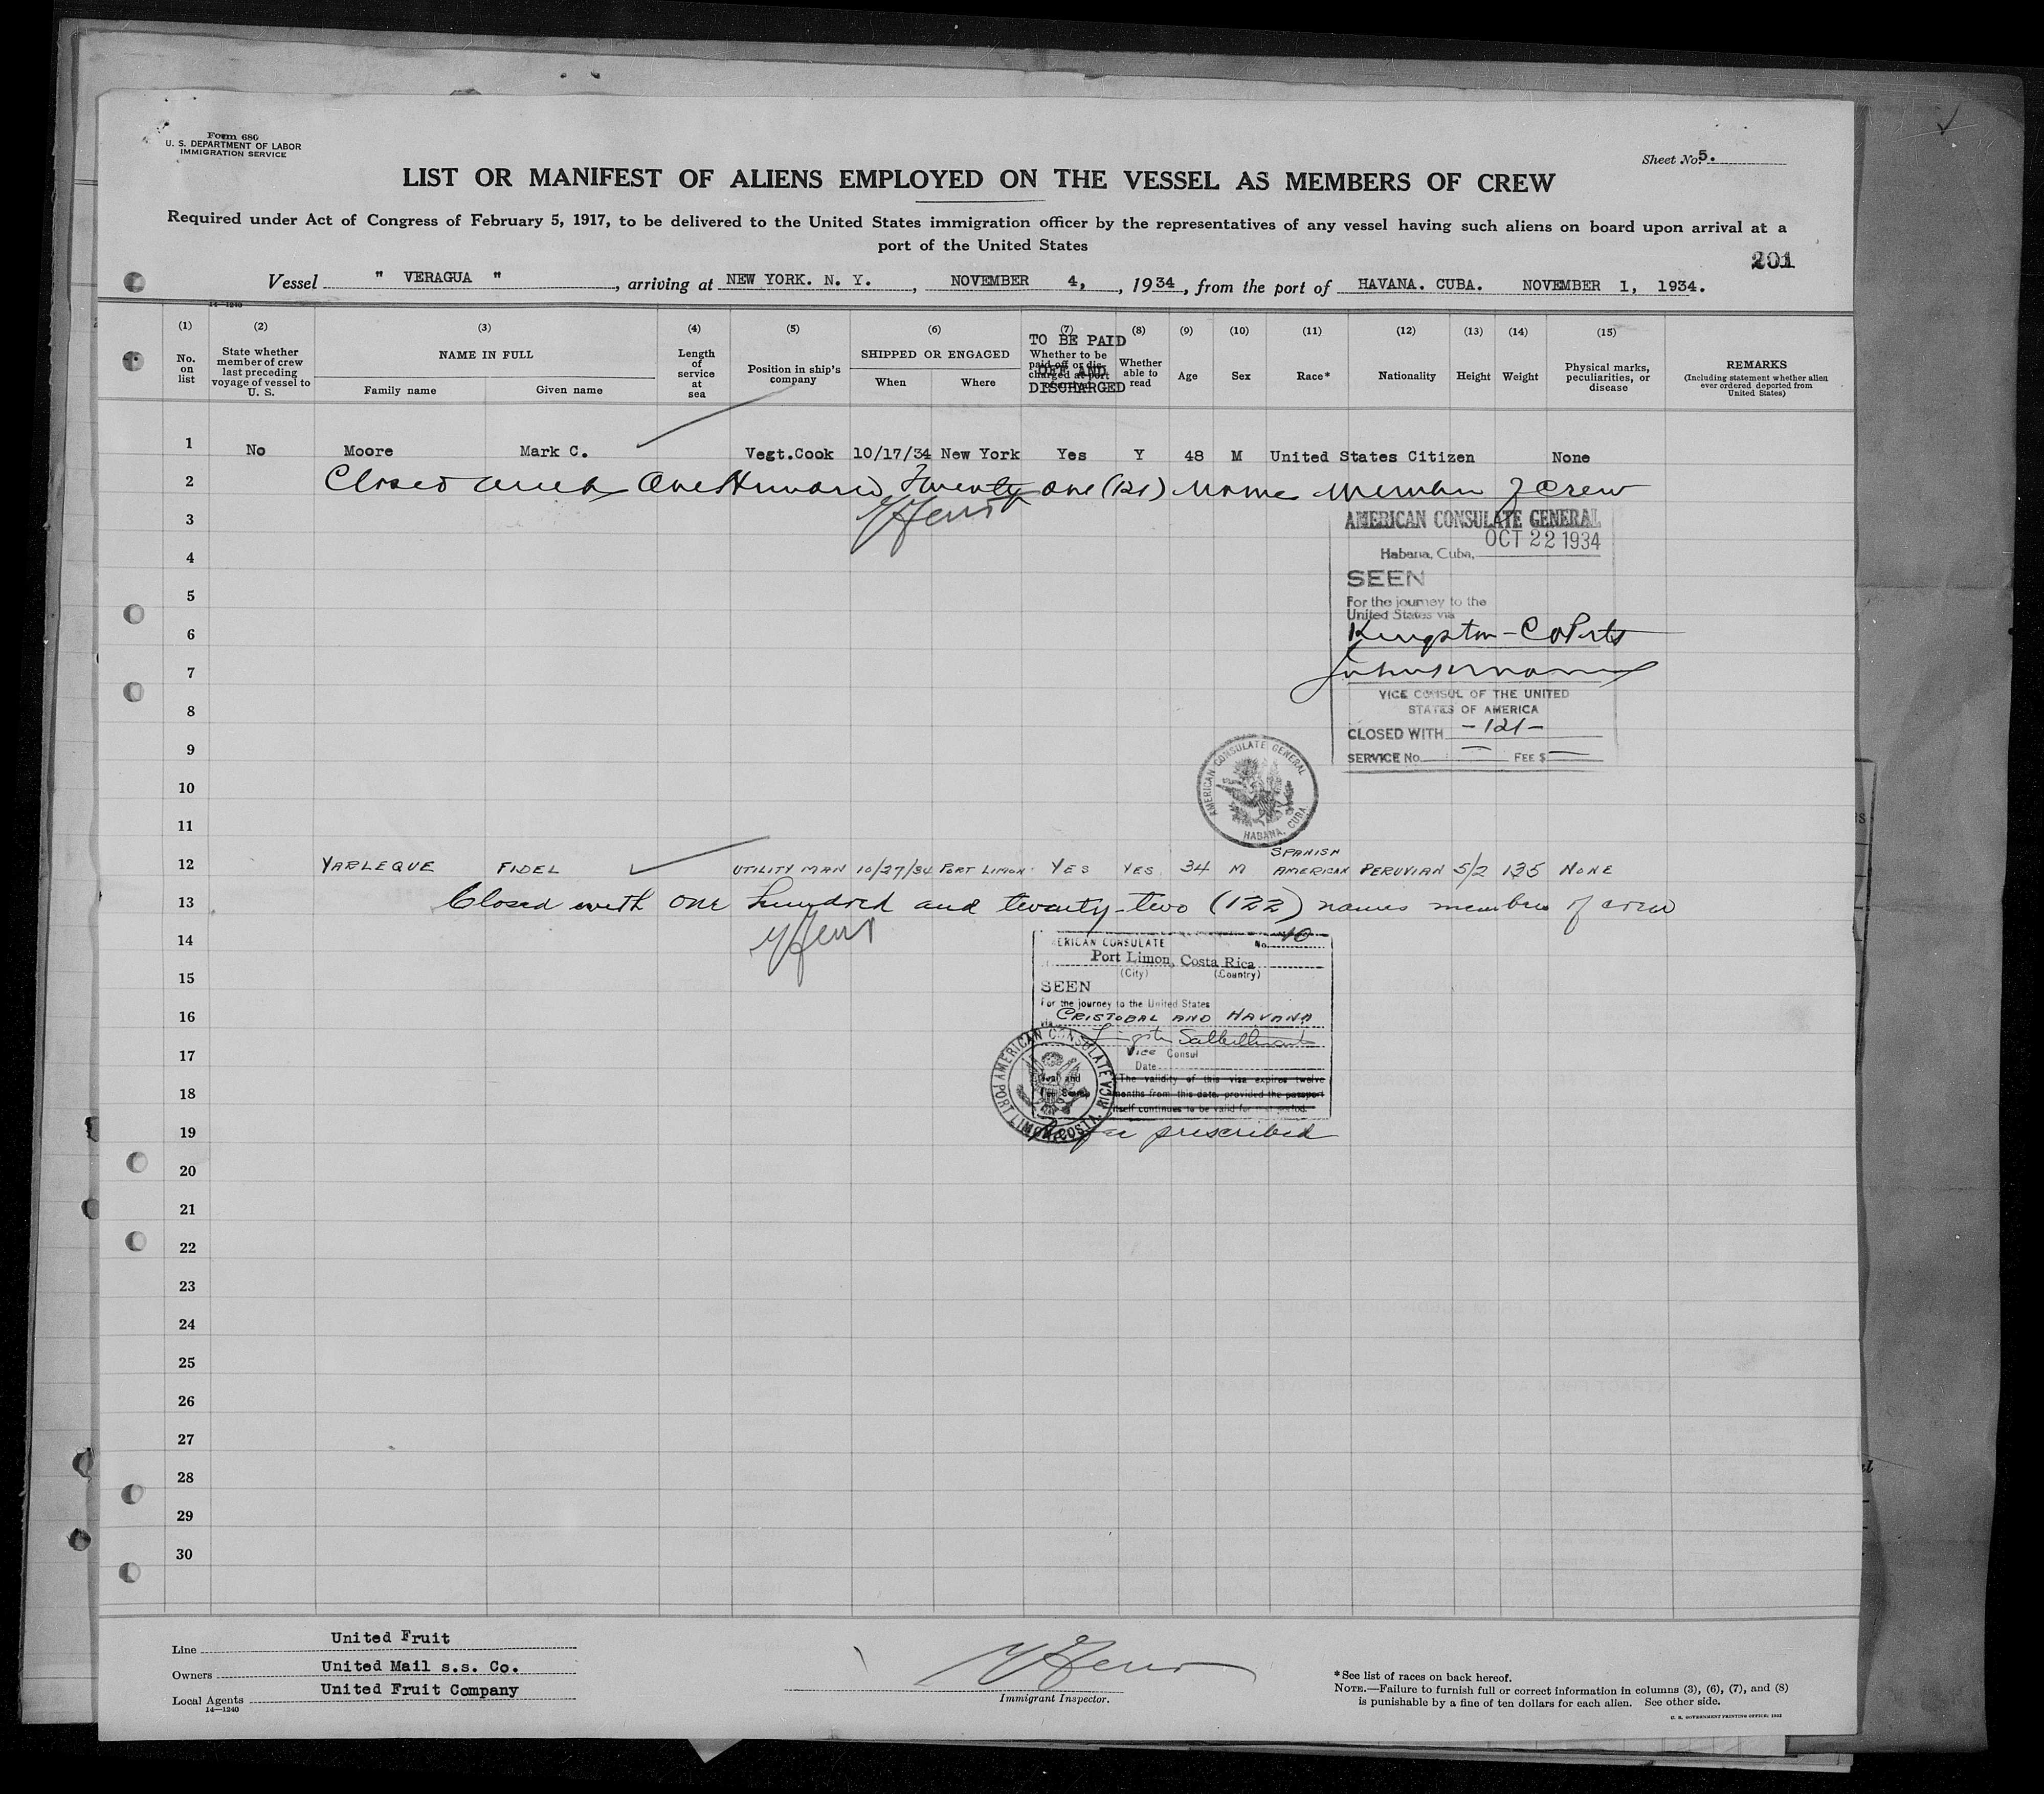 Form 680
U. S. DEPARTMENT OF LABOR
IMMIGRATION SERVICE
Sheet No. 5.
LIST OR MANIFEST OF ALIENS EMPLOYED ON THE VESSEL AS MEMBERS OF CREW
Required under Act of Congress of February 5, 1917, to be delivered to the United States immigration officer by the representatives of any vessel having such aliens on board upon arrival at a
port of the United States
201
Vessel " VERAGUA " , arriving at NEW YORK. N. Y. , NOVEMBER 4, , 1934 , from the port of HAVANA. CUBA. NOVEMBER 1, 1934.
14—1240
(1) (2) (3) (4) (5) (6) (7) (8) (9) (10) (11) (12) (13) (14) (15)
No. on list
State whether member of crew last preceding voyage of vessel to U. S.
NAME IN FULL
Family name Given name
Length of service at sea
Position in ship's company
SHIPPED OR ENGAGED
When Where
TO BE PAID OFF AND DISCHARGED
Whether to be paid off or discharged at port
Whether able to read
Age
Sex
Race*
Nationality
Height
Weight
Physical marks, peculiarities, or disease
REMARKS
(Including statement whether alien ever ordered deported from United States)
1 No Moore Mark C. Vegt.Cook 10/17/34 New York Yes Y 48 M United States Citizen None
2 Closed with One Hundred Twenty one (121) Name Member of Crew
3
AMERICAN CONSULATE GENERAL
OCT 22 1934
4
Habana, Cuba,
5
SEEN
For the journey to the
United States via
6
Kingston - Co Ports
7
VICE CONSUL OF THE UNITED
8
STATES OF AMERICA
CLOSED WITH -121-
9
SERVICE No. FEE $
AMERICAN CONSULATE GENERAL
HABANA, CUBA
10
11
12 YARLEQUE FIDEL UTILITY MAN 10/27/34 PORT LIMON YES YES 34 M SPANISH AMERICAN PERUVIAN 5/2 135 NONE
13 Closed with one hundred and twenty-two (122) names members of crew
14
ERICAN CONSULATE No. 40
Port Limon, Costa Rica
15
(City) (Country)
SEEN
For the journey to the United States
16
via CRISTOBAL AND HAVANA
17
Vice Consul
Date
The validity of this visa expires twelve
18
months from this date, provided the passport
itself continues to be valid for that period.
AMERICAN CONSULATE
PORT LIMON, COSTA RICA
19
prescribed
20
21
22
23
24
25
26
27
28
29
30
Line United Fruit
Owners United Mail s.s. Co.
Local Agents United Fruit Company
14—1240
Immigrant Inspector.
*See list of races on back hereof.
NOTE.—Failure to furnish full or correct information in columns (3), (6), (7), and (8)
is punishable by a fine of ten dollars for each alien. See other side.
U. S. GOVERNMENT PRINTING OFFICE: 1932